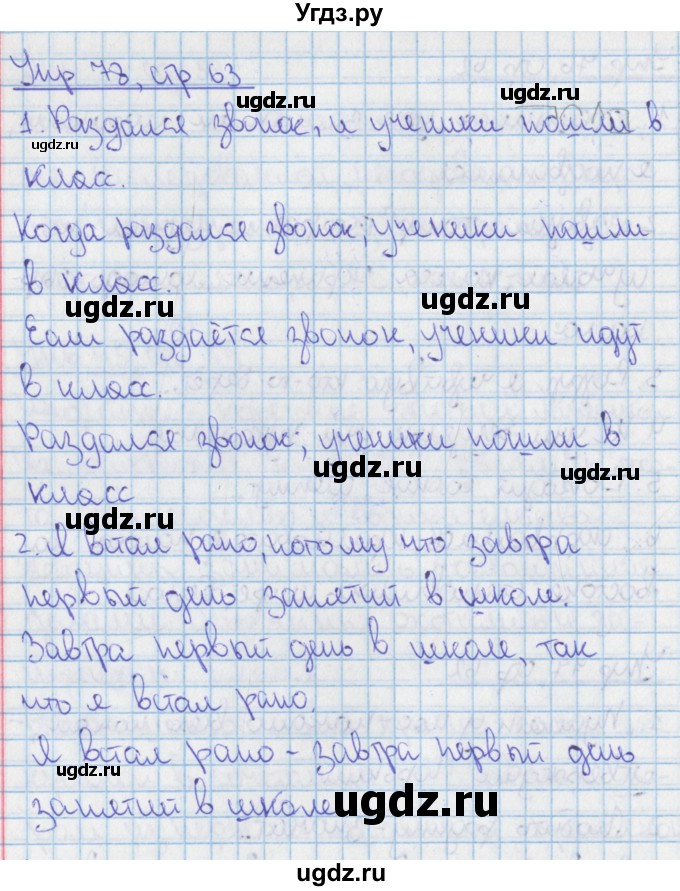 Угдз.ру
Упр 78, стр 63
ugdz.ru
1. Раздался звонок, и ученики пошли в
ugdz.ru
класс.
Когда раздался звонок, ученики пошли
в класс.
ugdz.ru
ugdz.ru
Если раздаётся звонок, ученики идут
в класс.
ugdz.ru
Раздался звонок, ученики пошли в
ugdz.ru
ugdz.ru
класс
ugdz.ru
2. Я встал рано, потому что завтра
первый день занятий в школе.
ugdz.ru
Завтра первый день в школе, так
что я встал рано.
ugdz.ru
Я встал рано - завтра первый день
ugdz.ru
занятий в школе
ugdz.ru
ugdz.ru